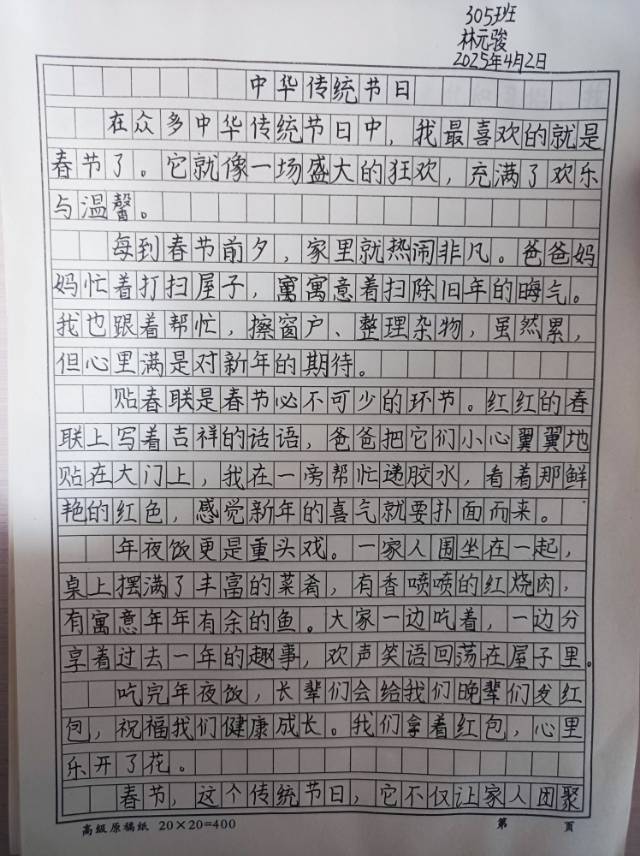 305班
林元骏
2025年4月2日
中华传统节日
在众多中华传统节日中，我最喜欢的就是
春节了。它就像一场盛大的狂欢，充满了欢乐
与温馨。
每到春节前夕，家里就热闹非凡。爸爸妈
妈忙着打扫屋子，寓寓意着扫除旧年的晦气。
我也跟着帮忙，擦窗户、整理杂物，虽然累，
但心里满是对新年的期待。
贴春联是春节必不可少的环节。红红的春
联上写着吉祥的话语，爸爸把它们小心翼翼地
贴在大门上，我在一旁帮忙递胶水，看着那鲜
艳的红色，感觉新年的喜气就要扑面而来。
年夜饭更是重头戏。一家人围坐在一起，
桌上摆满了丰富的菜肴，有香喷喷的红烧肉，
有寓意年年有余的鱼。大家一边吃着，一边分
享着过去一年的趣事，欢声笑语回荡在屋子里。
吃完年夜饭，长辈们会给我们晚辈们发红
包，祝福我们健康成长。我们拿着红包，心里
乐开了花。
春节，这个传统节日，它不仅让家人团聚
高级原稿纸 20×20=400 第 页